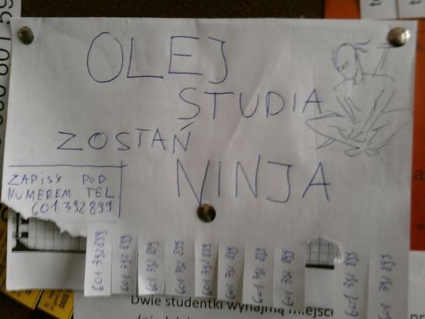 OLEJ
STUDIA
ZOSTAŃ
NINJA
ZAPISY POD
NUMEREM TEL
601 392 899
601 392 899
601 392 899
601 392 899
601 392 899
601 392 899
601 392 899
601 392 899
601 392 899
601 392 899
601 392 899
Dwie studentki wynajmą miejsc